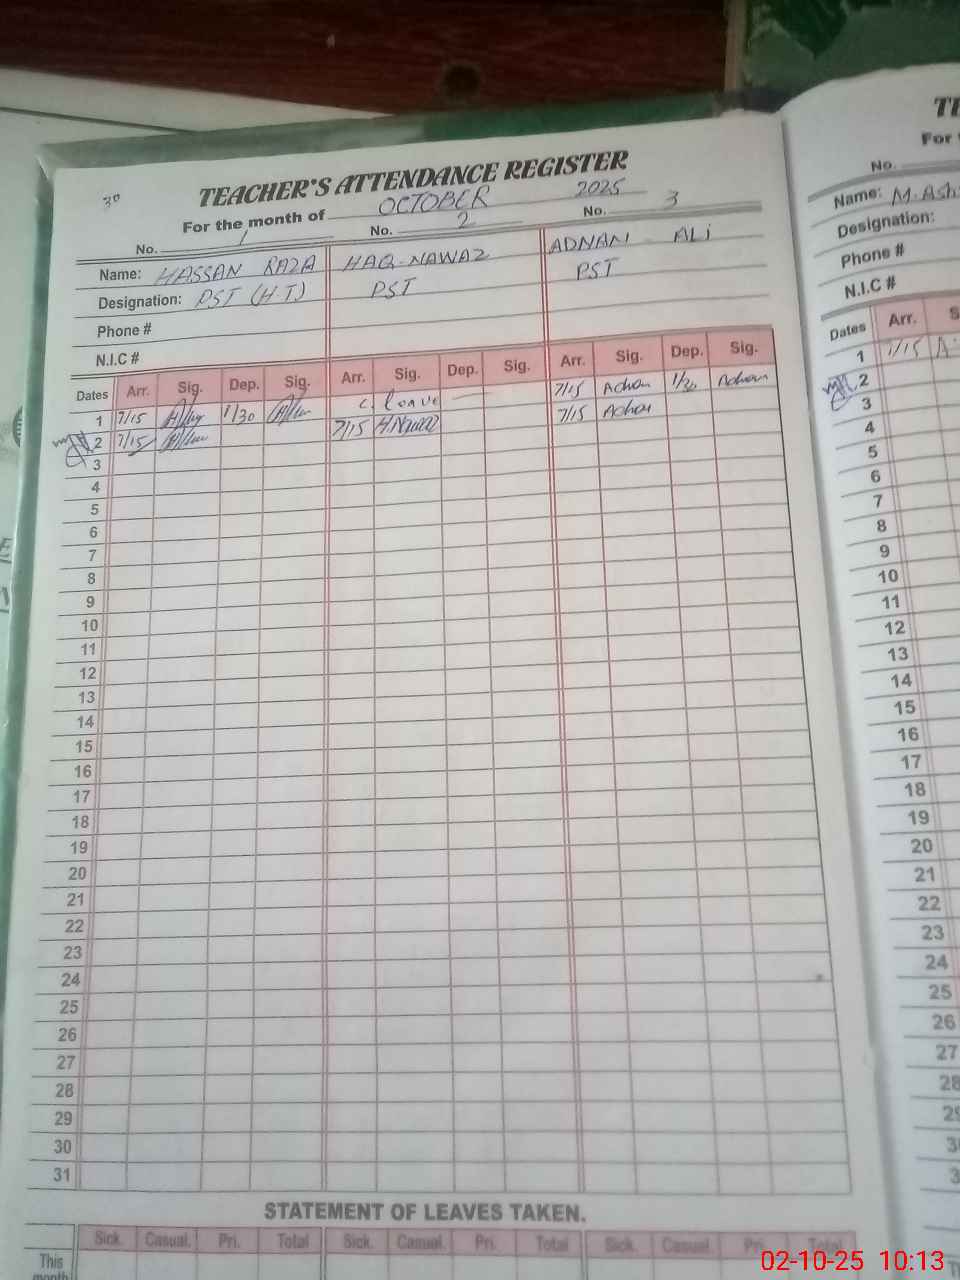 30
TEACHER'S ATTENDANCE REGISTER
For the month of OCTOBER 2025
No. 1 No. 2 No. 3
Name: HASSAN RAZA HAQ-NAWAZ ADNAN ALi
Designation: PST (H-T) PST PST
Phone #
N.I.C #
Dates Arr. Sig. Dep. Sig. Arr. Sig. Dep. Sig. Arr. Sig. Dep. Sig.
1 7/15 1/30 C. leave 7/15 Adnan 1/30 Adnan
2 7/15 7/15 H.Nawaz 7/15 Adnan
3
4
5
6
7
8
9
10
11
12
13
14
15
16
17
18
19
20
21
22
23
24
25
26
27
28
29
30
31
STATEMENT OF LEAVES TAKEN.
Sick. Casual. Pri. Total Sick. Casual. Pri. Total Sick. Casual. Pri. Total
This
month
For
No.
Name: M. Ash
Designation:
Phone #
N.I.C #
Dates Arr. S
1 7/15
2
3
4
5
6
7
8
9
10
11
12
13
14
15
16
17
18
19
20
21
22
23
24
25
26
27
28
02-10-25 10:13